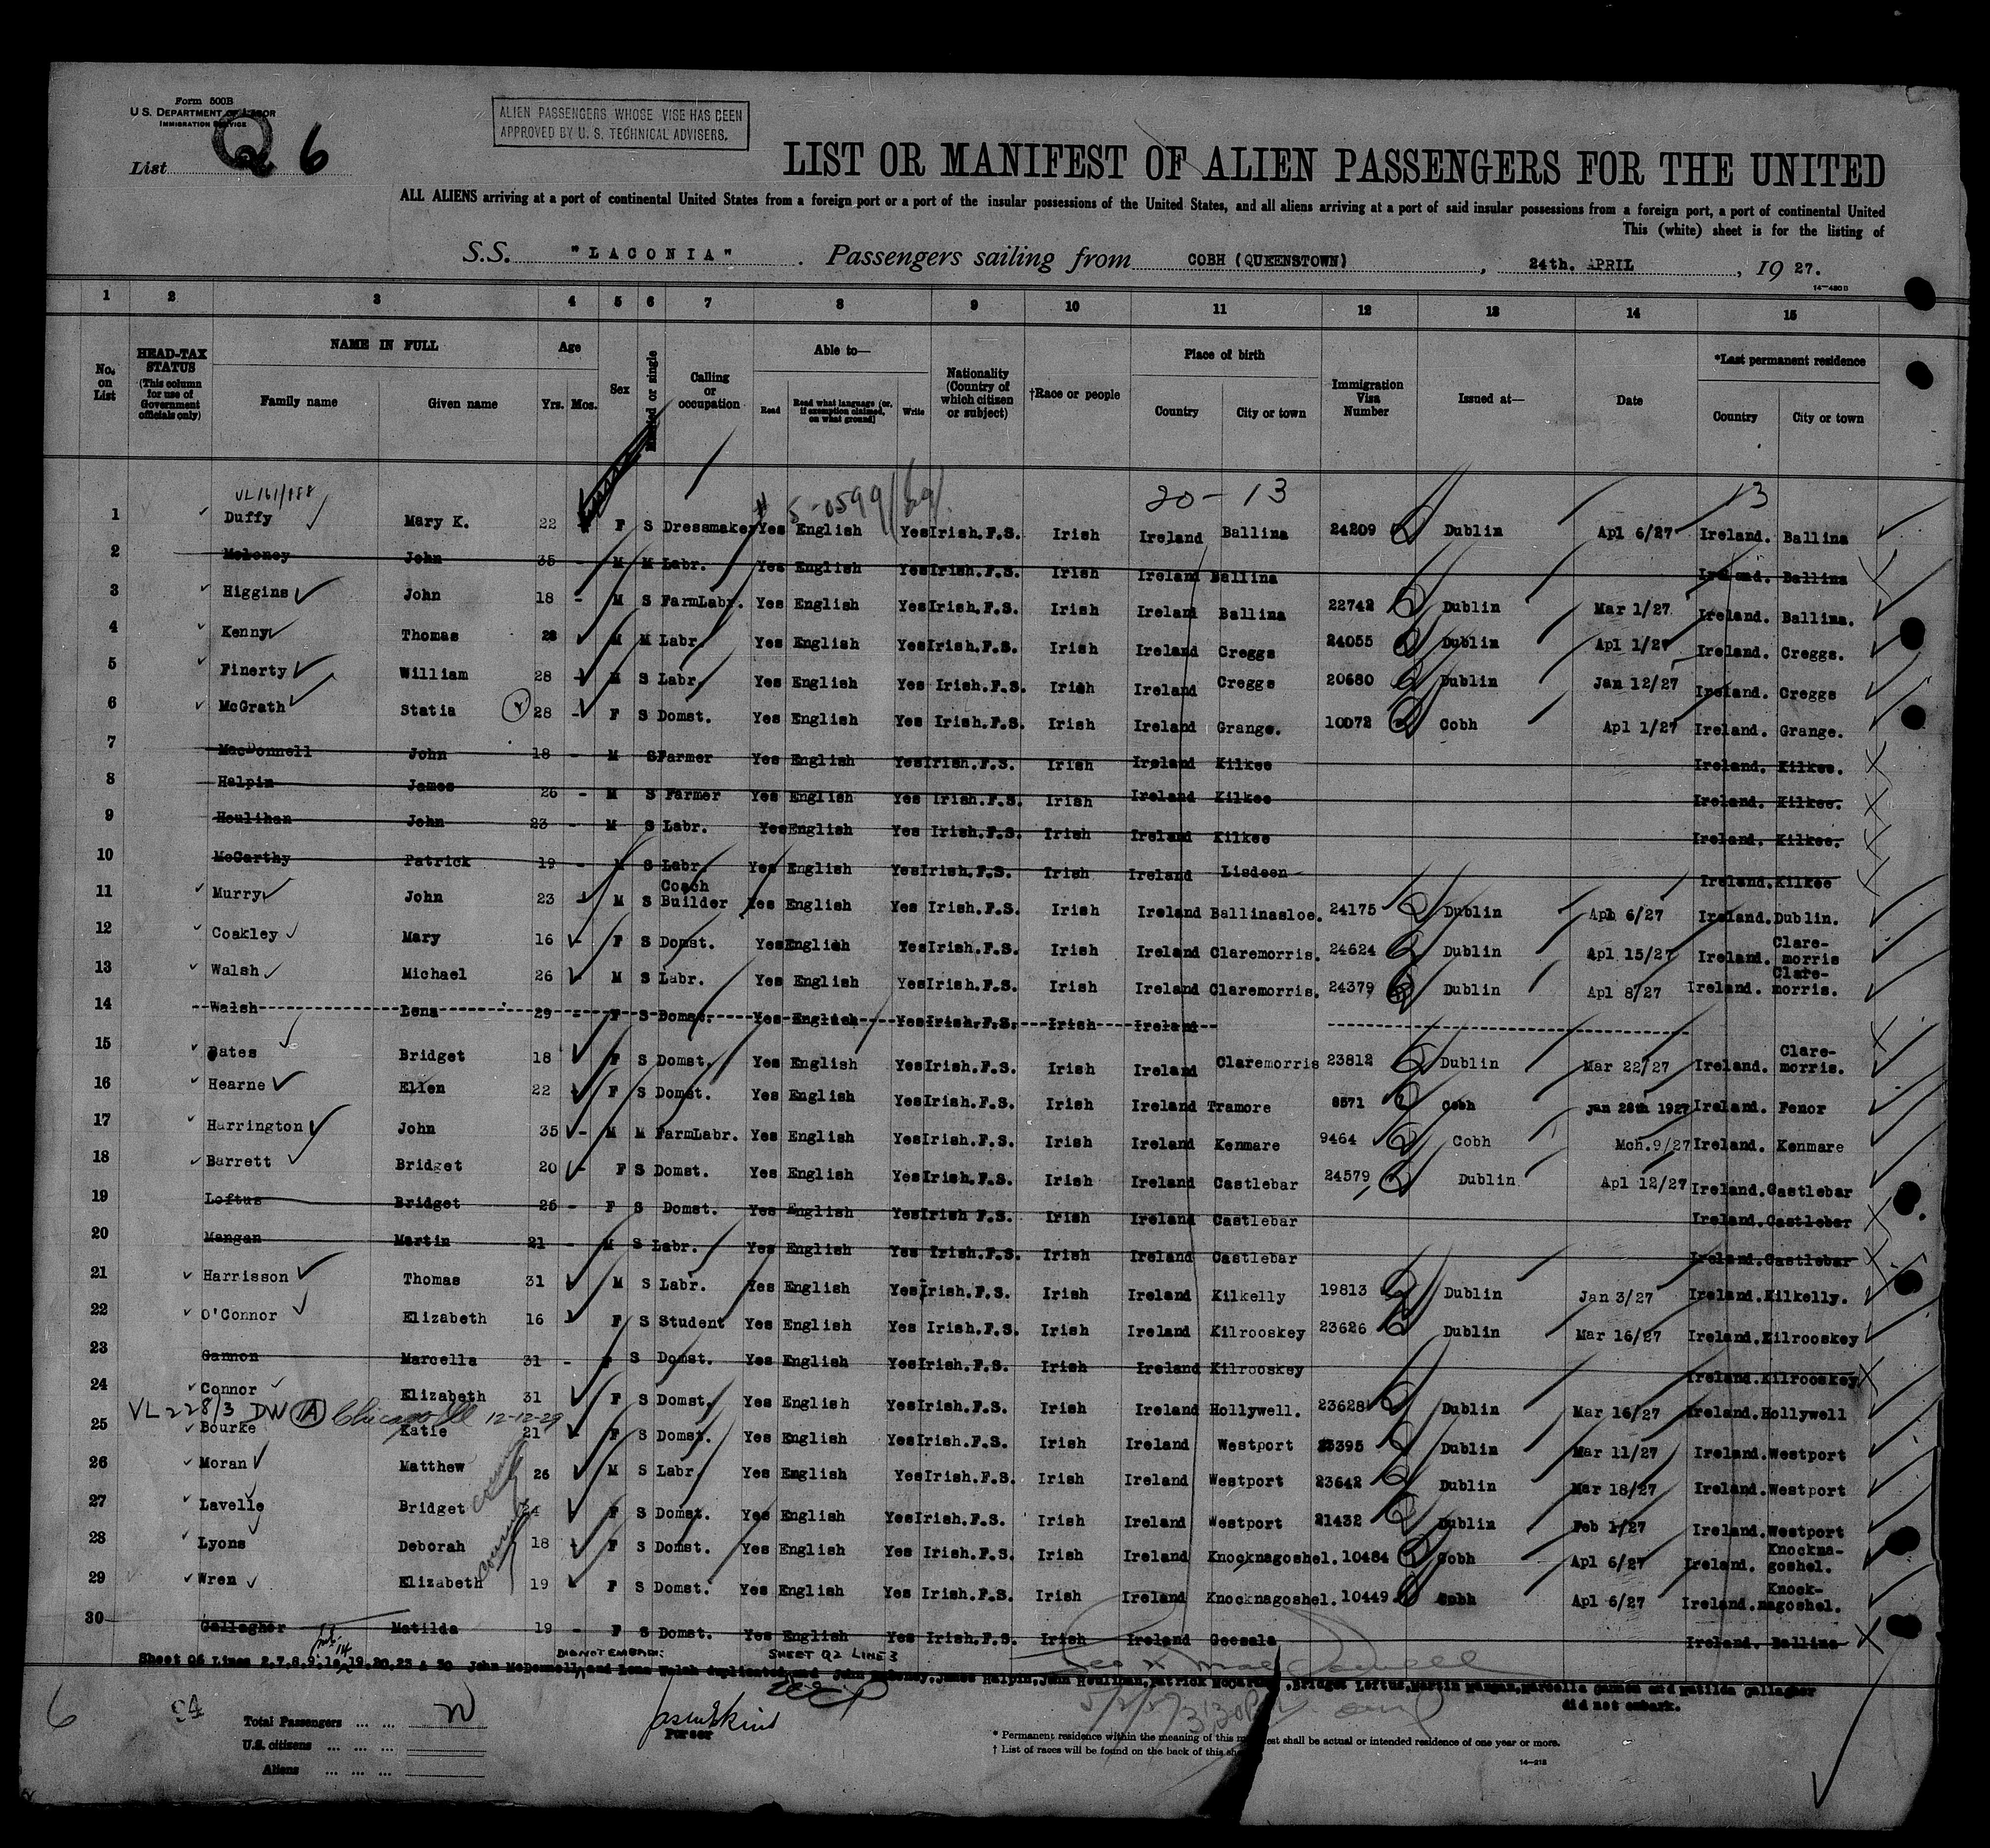 Form 500B
U.S. DEPARTMENT OF LABOR
IMMIGRATION SERVICE
List Q 6
ALIEN PASSENGERS WHOSE VISE HAS BEEN
APPROVED BY U. S. TECHNICAL ADVISERS.
LIST OR MANIFEST OF ALIEN PASSENGERS FOR THE UNITED
ALL ALIENS arriving at a port of continental United States from a foreign port or a port of the insular possessions of the United States, and all aliens arriving at a port of said insular possessions from a foreign port, a port of continental United
This (white) sheet is for the listing of
S.S. "LACONIA" . Passengers sailing from COBH (QUEENSTOWN) , 24th. APRIL , 19 27.
14—480 B
1 2 3 4 5 6 7 8 9 10 11 12 13 14 15
No. on List HEAD-TAX STATUS (This column for use of Government officials only) NAME IN FULL Family name Given name Age Yrs. Mos. Sex Married or single Calling or occupation Able to— Read Read what language (or, if exemption claimed, on what ground) Write Nationality (Country of which citizen or subject) †Race or people Place of birth Country City or town Immigration Visa Number Issued at— Date *Last permanent residence Country City or town
VL 161/888 5-0599 20 - 13 13
1 Duffy Mary K. 22 F S Dressmaker Yes English Yes Irish.F.S. Irish Ireland Ballina 24209 Dublin Apl 6/27 Ireland. Ballina
2 Moloney John 35 - M M Labr. Yes English Yes Irish.F.S. Irish Ireland Ballina Ireland. Ballina
3 Higgins John 18 - M S FarmLabr. Yes English Yes Irish.F.S. Irish Ireland Ballina 22742 Dublin Mar 1/27 Ireland. Ballina.
4 Kenny Thomas 28 M M Labr. Yes English Yes Irish.F.S. Irish Ireland Creggs 24055 Dublin Apl 1/27 Ireland. Creggs.
5 Finerty William 28 - M S Labr. Yes English Yes Irish.F.S. Irish Ireland Creggs 20680 Dublin Jan 12/27 Ireland. Creggs
6 McGrath Statia 28 - F S Domst. Yes English Yes Irish.F.S. Irish Ireland Grange. 10072 Cobh Apl 1/27 Ireland. Grange.
7 MacDonnell John 18 - M S Farmer Yes English Yes Irish.F.S. Irish Ireland Kilkee Ireland. Kilkee.
8 Halpin James 26 - M S Farmer Yes English Yes Irish.F.S. Irish Ireland Kilkee Ireland. Kilkee.
9 Houlihan John 23 - M S Labr. Yes English Yes Irish.F.S. Irish Ireland Kilkee Ireland. Kilkee.
10 McCarthy Patrick 19 - M S Labr. Yes English Yes Irish.F.S. Irish Ireland Lisdeen Ireland. Kilkee
11 Murry John 23 - M S Coach Builder Yes English Yes Irish.F.S. Irish Ireland Ballinasloe. 24175 Dublin Apl 6/27 Ireland. Dublin.
12 Coakley Mary 16 - F S Domst. Yes English Yes Irish.F.S. Irish Ireland Claremorris. 24624 Dublin Apl 15/27 Ireland. Clare-morris
13 Walsh Michael 26 M S Labr. Yes English Yes Irish.F.S. Irish Ireland Claremorris. 24379 Dublin Apl 8/27 Ireland. Clare-morris.
14 Walsh Lena 29 - F S Domst. Yes English Yes Irish.F.S. Irish Ireland
15 Bates Bridget 18 F S Domst. Yes English Yes Irish.F.S. Irish Ireland Claremorris 23812 Dublin Mar 22/27 Ireland. Clare-morris.
16 Hearne Ellen 22 F S Domst. Yes English Yes Irish.F.S. Irish Ireland Tramore 8571 Cobh Jan 28th 1927 Ireland. Fenor
17 Harrington John 35 - M M FarmLabr. Yes English Yes Irish.F.S. Irish Ireland Kenmare 9464 Cobh Mch.9/27 Ireland. Kenmare
18 Barrett Bridget 20 - F S Domst. Yes English Yes Irish.F.S. Irish Ireland Castlebar 24579 Dublin Apl 12/27 Ireland. Castlebar
19 Loftus Bridget 26 - F S Domst. Yes English Yes Irish F.S. Irish Ireland Castlebar Ireland. Castlebar
20 Mangan Martin 21 - M S Labr. Yes English Yes Irish.F.S. Irish Ireland Castlebar Ireland. Castlebar
21 Harrisson Thomas 31 M S Labr. Yes English Yes Irish.F.S. Irish Ireland Kilkelly 19813 Dublin Jan 3/27 Ireland. Kilkelly.
22 O'Connor Elizabeth 16 F S Student Yes English Yes Irish.F.S. Irish Ireland Kilrooskey 23626 Dublin Mar 16/27 Ireland. Kilrooskey
23 Gannon Marcella 31 - F S Domst. Yes English Yes Irish.F.S. Irish Ireland Kilrooskey Ireland. Kilrooskey
24 Connor Elizabeth 31 F S Domst. Yes English Yes Irish.F.S. Irish Ireland Hollywell. 23628 Dublin Mar 16/27 Ireland. Hollywell
VL 228/3 DW (A) Chicago Ill 12-12-29
25 Bourke Katie 21 F S Domst. Yes English Yes Irish.F.S. Irish Ireland Westport 23395 Dublin Mar 11/27 Ireland. Westport
26 Moran Matthew 26 M S Labr. Yes English Yes Irish.F.S. Irish Ireland Westport 23642 Dublin Mar 18/27 Ireland. Westport
27 Lavelle Bridget 24 F S Domst. Yes English Yes Irish.F.S. Irish Ireland Westport 21432 Dublin Feb 1/27 Ireland. Westport
28 Lyons Deborah 18 F S Domst. Yes English Yes Irish.F.S. Irish Ireland Knocknagoshel. 10484 Cobh Apl 6/27 Ireland. Knockna-goshel.
29 Wren Elizabeth 19 F S Domst. Yes English Yes Irish.F.S. Irish Ireland Knocknagoshel. 10449 Cobh Apl 6/27 Ireland. Knock-nagoshel.
cousins cousins
30 Gallagher Matilda 19 - F S Domst. Yes English Yes Irish.F.S. Irish Ireland Geesala Ireland. Ballina
14 DID NOT EMBARK: SHEET Q2 LINE 3
Sheet Q6 Lines 2,7,8,9,10,19,20,23 & 30 John McDonnell, and Lena Walsh duplicated, and John Moloney, James Halpin, John Houlihan, Patrick McCarthy, Bridget Loftus, Martin Mangan, Marcella Gannon and Matilda Gallagher
did not embark.
6 94
Total Passengers ... ...
U.S. citizens ... ... ...
Aliens ... ... ...
Purser
* Permanent residence within the meaning of this manifest shall be actual or intended residence of one year or more.
† List of races will be found on the back of this sheet
14—218